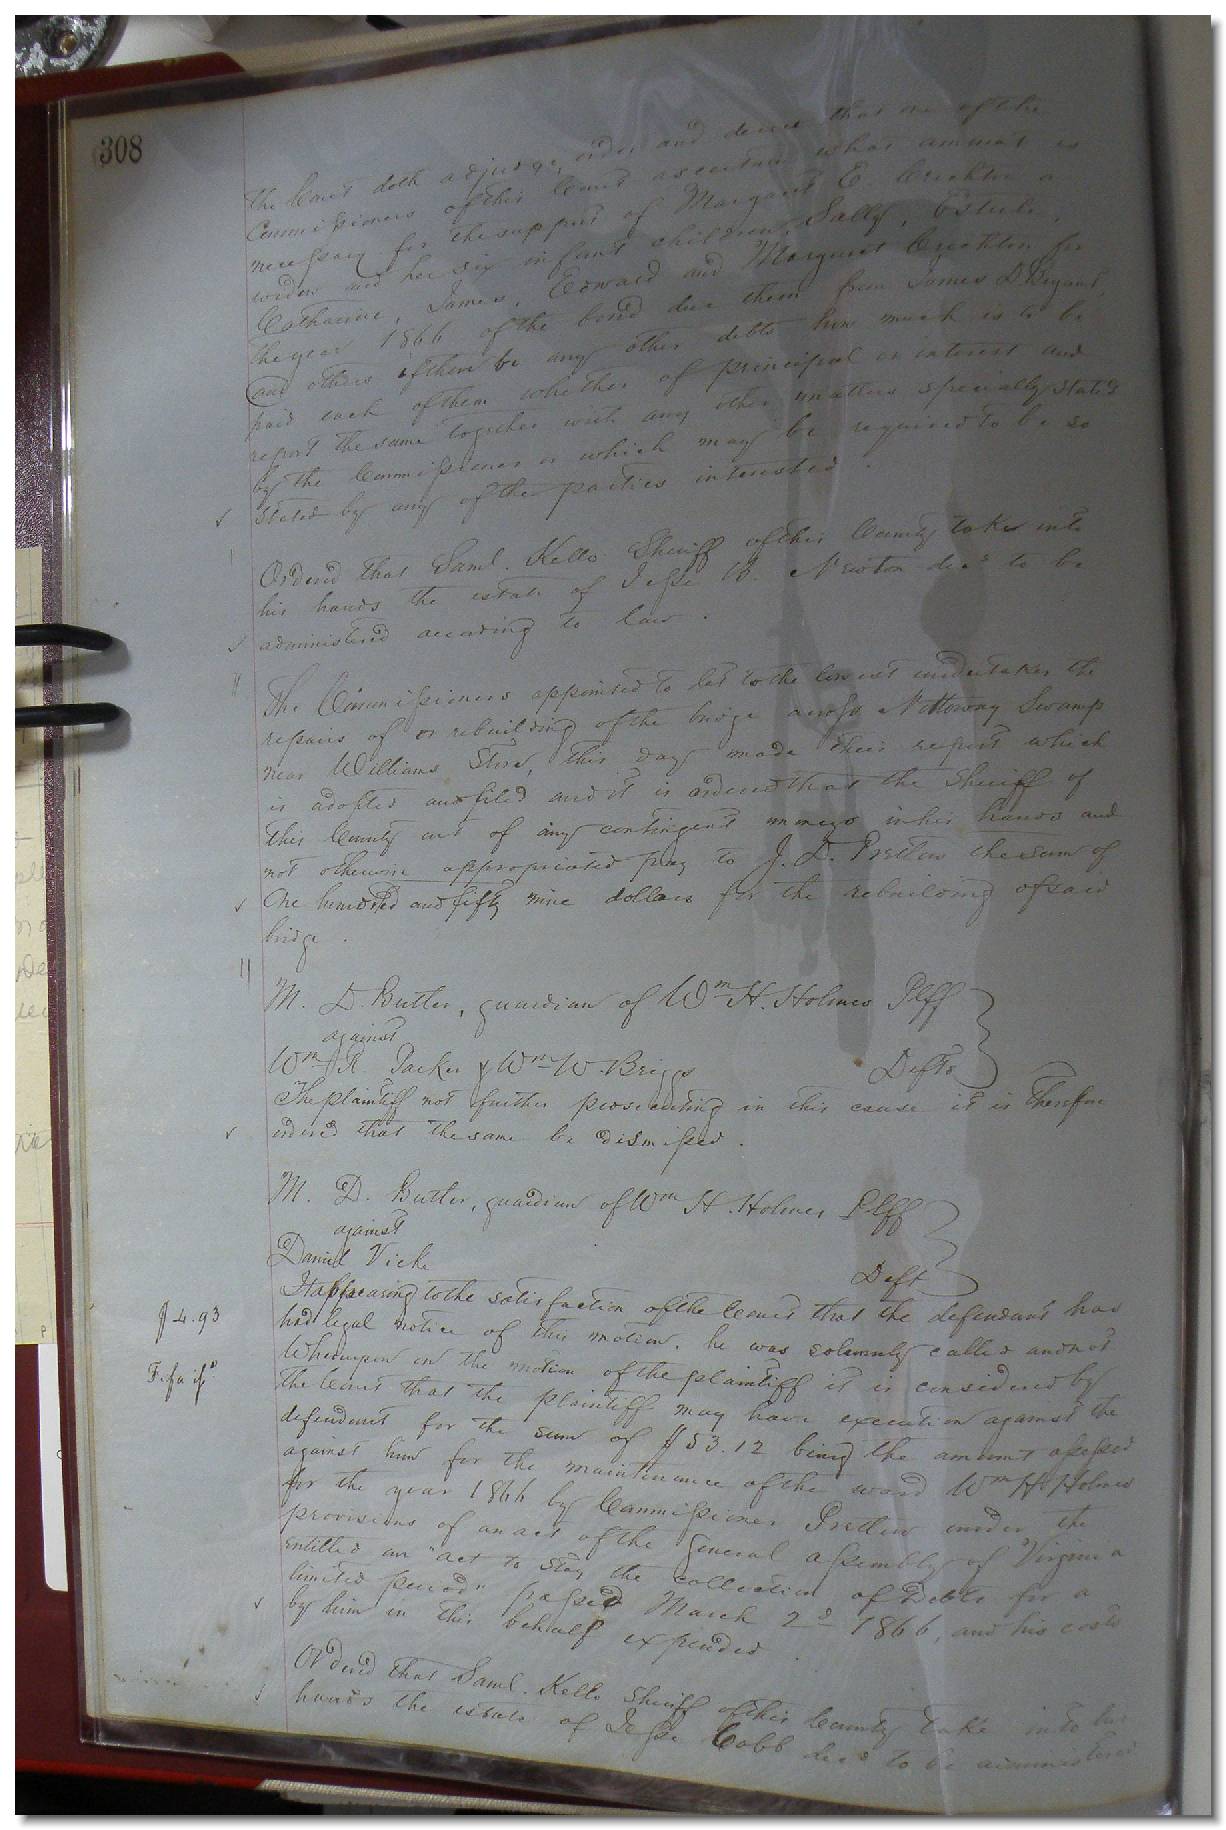 308
the Court doth adjudge, order and decree that one of the
Commissioners of this Court ascertain what amount is
necessary for the support of Margaret E. Crichton a
widow and her six infant children, Sally, Estule,
Catharine, James, Edward and Margaret Crichton for
the year 1866 of the bond due them from James D Bryant,
and others if there be any other debts how much is to be
paid each of them whether of principal or interest and
report the same together with any other matters specially stated
by the Commissioner or which may be required to be so
stated by any of the parties interested.
Ordered that Saml. Kello Sheriff of this County take into
his hands the estate of Jesse W. Newton decd to be
administered according to law.
The Commissioners appointed to let to the lowest undertaker the
repairs of or rebuilding of the bridge across Nottoway Swamp
near Williams Store, this day made their report which
is adopted and filed and it is ordered that the Sheriff of
this County out of any contingent moneys in his hands and
not otherwise appropriated pay to J. D. Pretlow the sum of
One hundred and fifty nine dollars for the rebuilding of said
bridge.
M. D. Butler, guardian of Wm H. Holmes Plff
against
Wm R. Parker & Wm W. Briggs Defts
The plaintiff not further prosecuting in this cause it is therefore
ordered that the same be dismissed.
M. D. Butler, guardian of Wm H. Holmes Plff
against
Daniel Vick Deft
It appearing to the satisfaction of the Court that the defendant has
$4.93
had legal notice of this motion, he was solemnly called and not
Fi. fa isd
Whereupon on the motion of the plaintiff it is considered by
the Court that the plaintiff may have execution against the
defendant for the sum of $53.12 being the amount assessed
against him for the maintenance of the ward Wm H. Holmes
for the year 1866 by Commissioner Pretlow under the
provisions of an act of the General assembly of Virginia
entitled an "act to stay the collection of Debts for a
limited period" passed March 2d 1866, and his costs
by him in this behalf expended.
Ordered that Saml. Kello Sheriff of this County take into his
hands the estate of Jesse Cobb decd to be administered